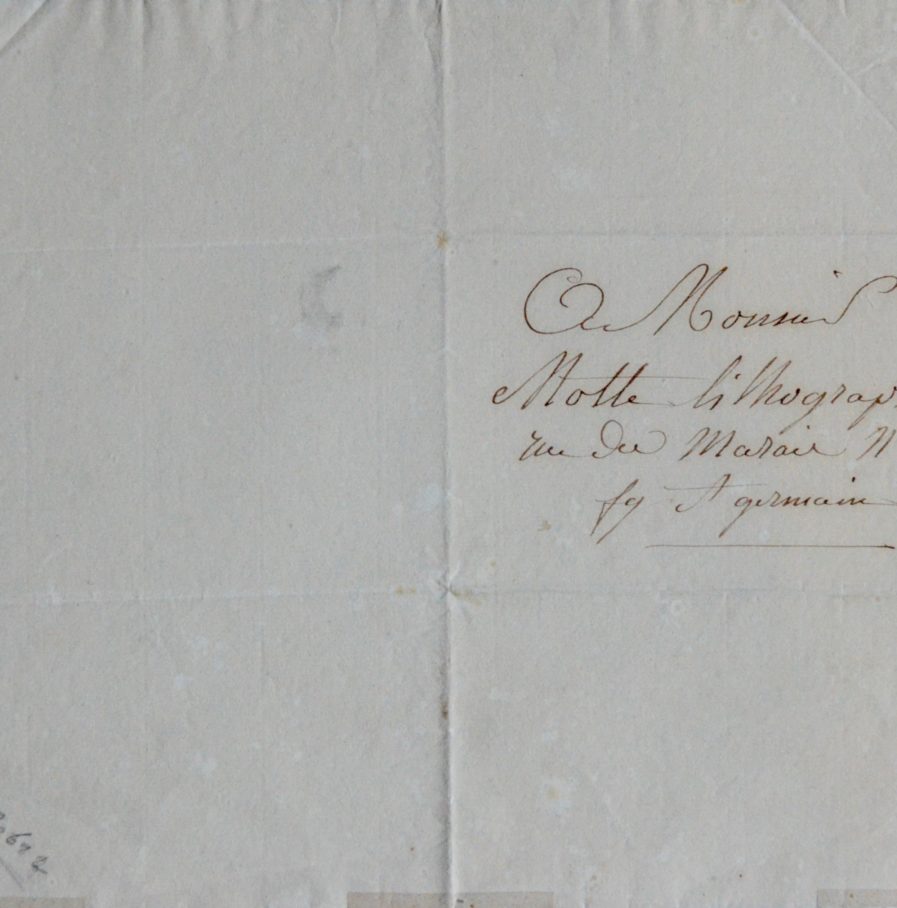 A Monsieur
Motte lithograp
rue du Marais N
fg St germain